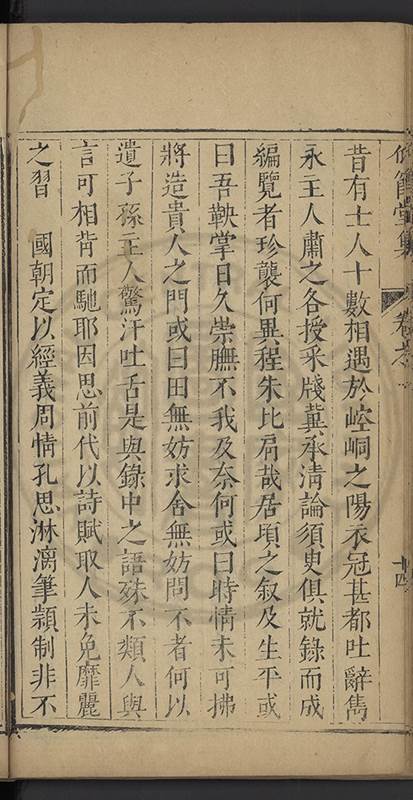 堂集
昔有士人十數相遇於崆峒之陽衣冠甚都吐辭雋
永主人肅之各授采牋冀承清論須臾俱就錄而成
編覽者珍襲何異程朱比肩哉居頃之叙及生平或
曰吾鞅掌日久崇膴不我及奈何或曰時情未可拂
將造貴人之門或曰田無妨求舍無妨問不者何以
遺子孫主人驚汗吐舌是與錄中之語殊不類人與
言可相背而馳耶因思前代以詩賦取人未免靡麗
之習　國朝定以經義周情孔思淋漓筆顯制非不